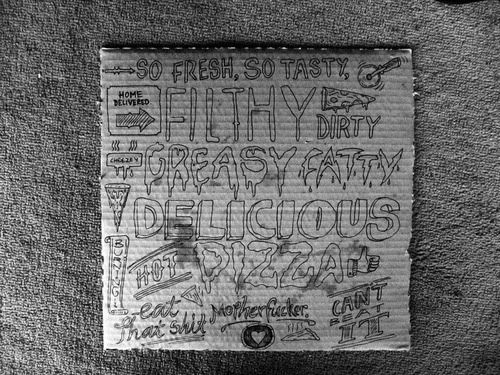 SO FRESH, SO TASTY,
HOME
DELIVERED
FILTHY
DIRTY
CHEEZEY
GREASY FATTY
DELICIOUS
BURNING
HOT PIZZA
eat
that shit
Motherfucker.
CAN'T
BEAT
IT